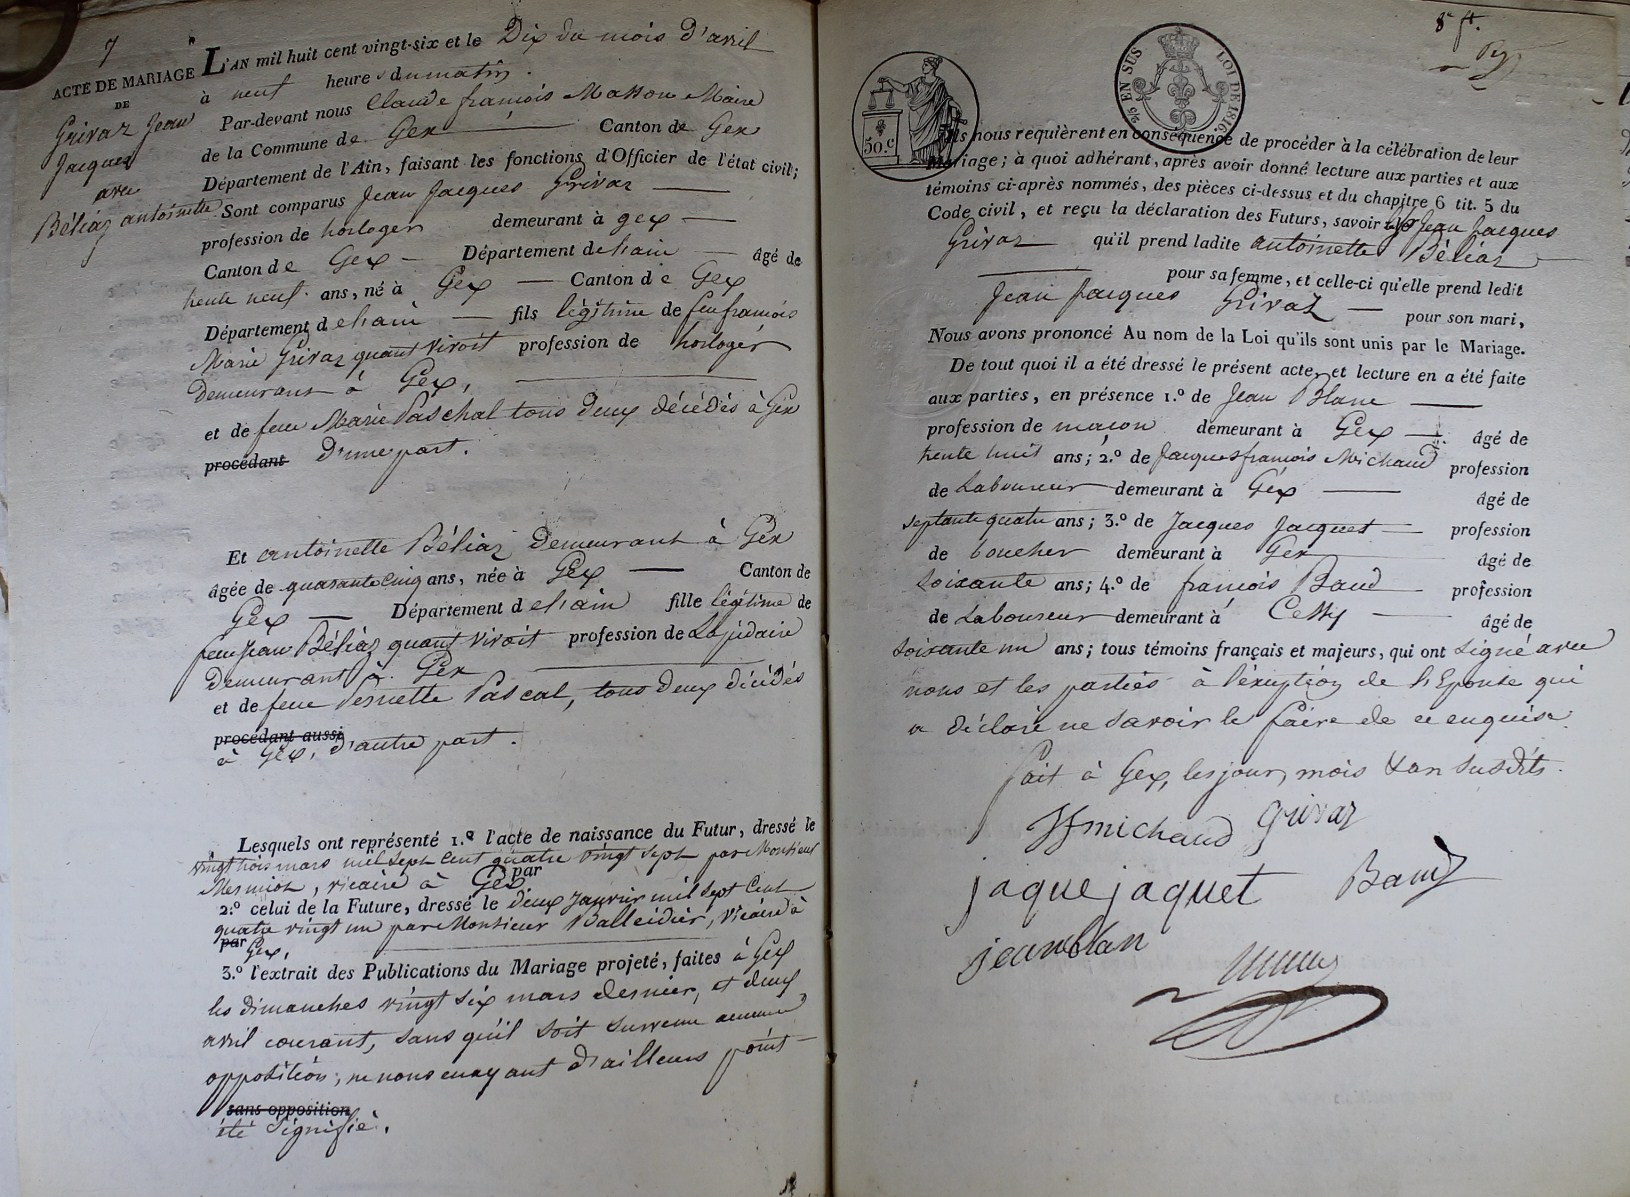 7
ACTE DE MARIAGE
DE
Grivaz Jean
Jacques
avec
Béliaz antoinette
L'AN mil huit cent vingt-six et le Dix du mois d'avril
à neuf heures du matin.
Par-devant nous Claude françois Masson Maire
de la Commune de Gex Canton de Gex
Département de l'Ain, faisant les fonctions d'Officier de l'état civil;
Sont comparus Jean Jacques Grivaz
profession de horloger demeurant à gex
Canton de Gex Département de l'ain âgé de
trente neuf ans, né à Gex Canton de Gex
Département de l'ain fils légitime de feu françois
Marie Grivaz quant vivoit profession de horloger
demeurant à Gex,
et de feue Marie Paschal tous deux décédés à Gex
procédant d'une part.
Et antoinette Béliaz demeurant à Gex
âgée de quarante cinq ans, née à Gex Canton de
Gex Département de l'ain fille légitime de
feu Jean Béliaz quant vivoit profession de Lapidaire
demeurant à Gex
et de feue Pernette Pascal, tous deux décédés
procédant aussi
à Gex, d'autre part.
Lesquels ont représenté 1.º l'acte de naissance du Futur, dressé le
vingt trois mars mil sept cent quatre vingt sept par Monsieur
par
Mermion, vicaire à Gex
2.º celui de la Future, dressé le deux janvier mil sept cent
quatre vingt un par Monsieur Balleidier, vicaire à
par Gex,
3.º l'extrait des Publications du Mariage projeté, faites à Gex
les dimanches vingt six mars dernier, et deux
avril courant, sans qu'il soit survenu aucune
opposition, ne nous en ayant d'ailleurs point
sans opposition
été signifié.
8 ft.
50.c
2/10 EN SUS LOI DE 1816.
Ils nous requièrent en conséquence de procéder à la célébration de leur
Mariage; à quoi adhérant, après avoir donné lecture aux parties et aux
témoins ci-après nommés, des pièces ci-dessus et du chapitre 6 tit. 5 du
Code civil, et reçu la déclaration des Futurs, savoir Jean Jacques
Grivaz qu'il prend ladite antoinette Béliaz
pour sa femme, et celle-ci qu'elle prend ledit
Jean Jacques Grivaz pour son mari,
Nous avons prononcé Au nom de la Loi qu'ils sont unis par le Mariage.
De tout quoi il a été dressé le présent acte, et lecture en a été faite
aux parties, en présence 1.º de Jean Blanc
profession de maçon demeurant à Gex âgé de
trente huit ans; 2.º de Jacques françois Michaud profession
de Laboureur demeurant à Gex âgé de
septante quatre ans; 3.º de Jacques Jacquet profession
de boucher demeurant à Gex âgé de
soixante ans; 4.º de françois Baud profession
de Laboureur demeurant à Cessy âgé de
soixante un ans; tous témoins français et majeurs, qui ont signé avec
nous et les parties à l'exception de l'Epouse qui
a déclaré ne savoir le faire de ce enquise.
fait à Gex, les jour, mois & an susdits.
Jfmichaud Grivaz
jaque jaquet Baud
jean blan